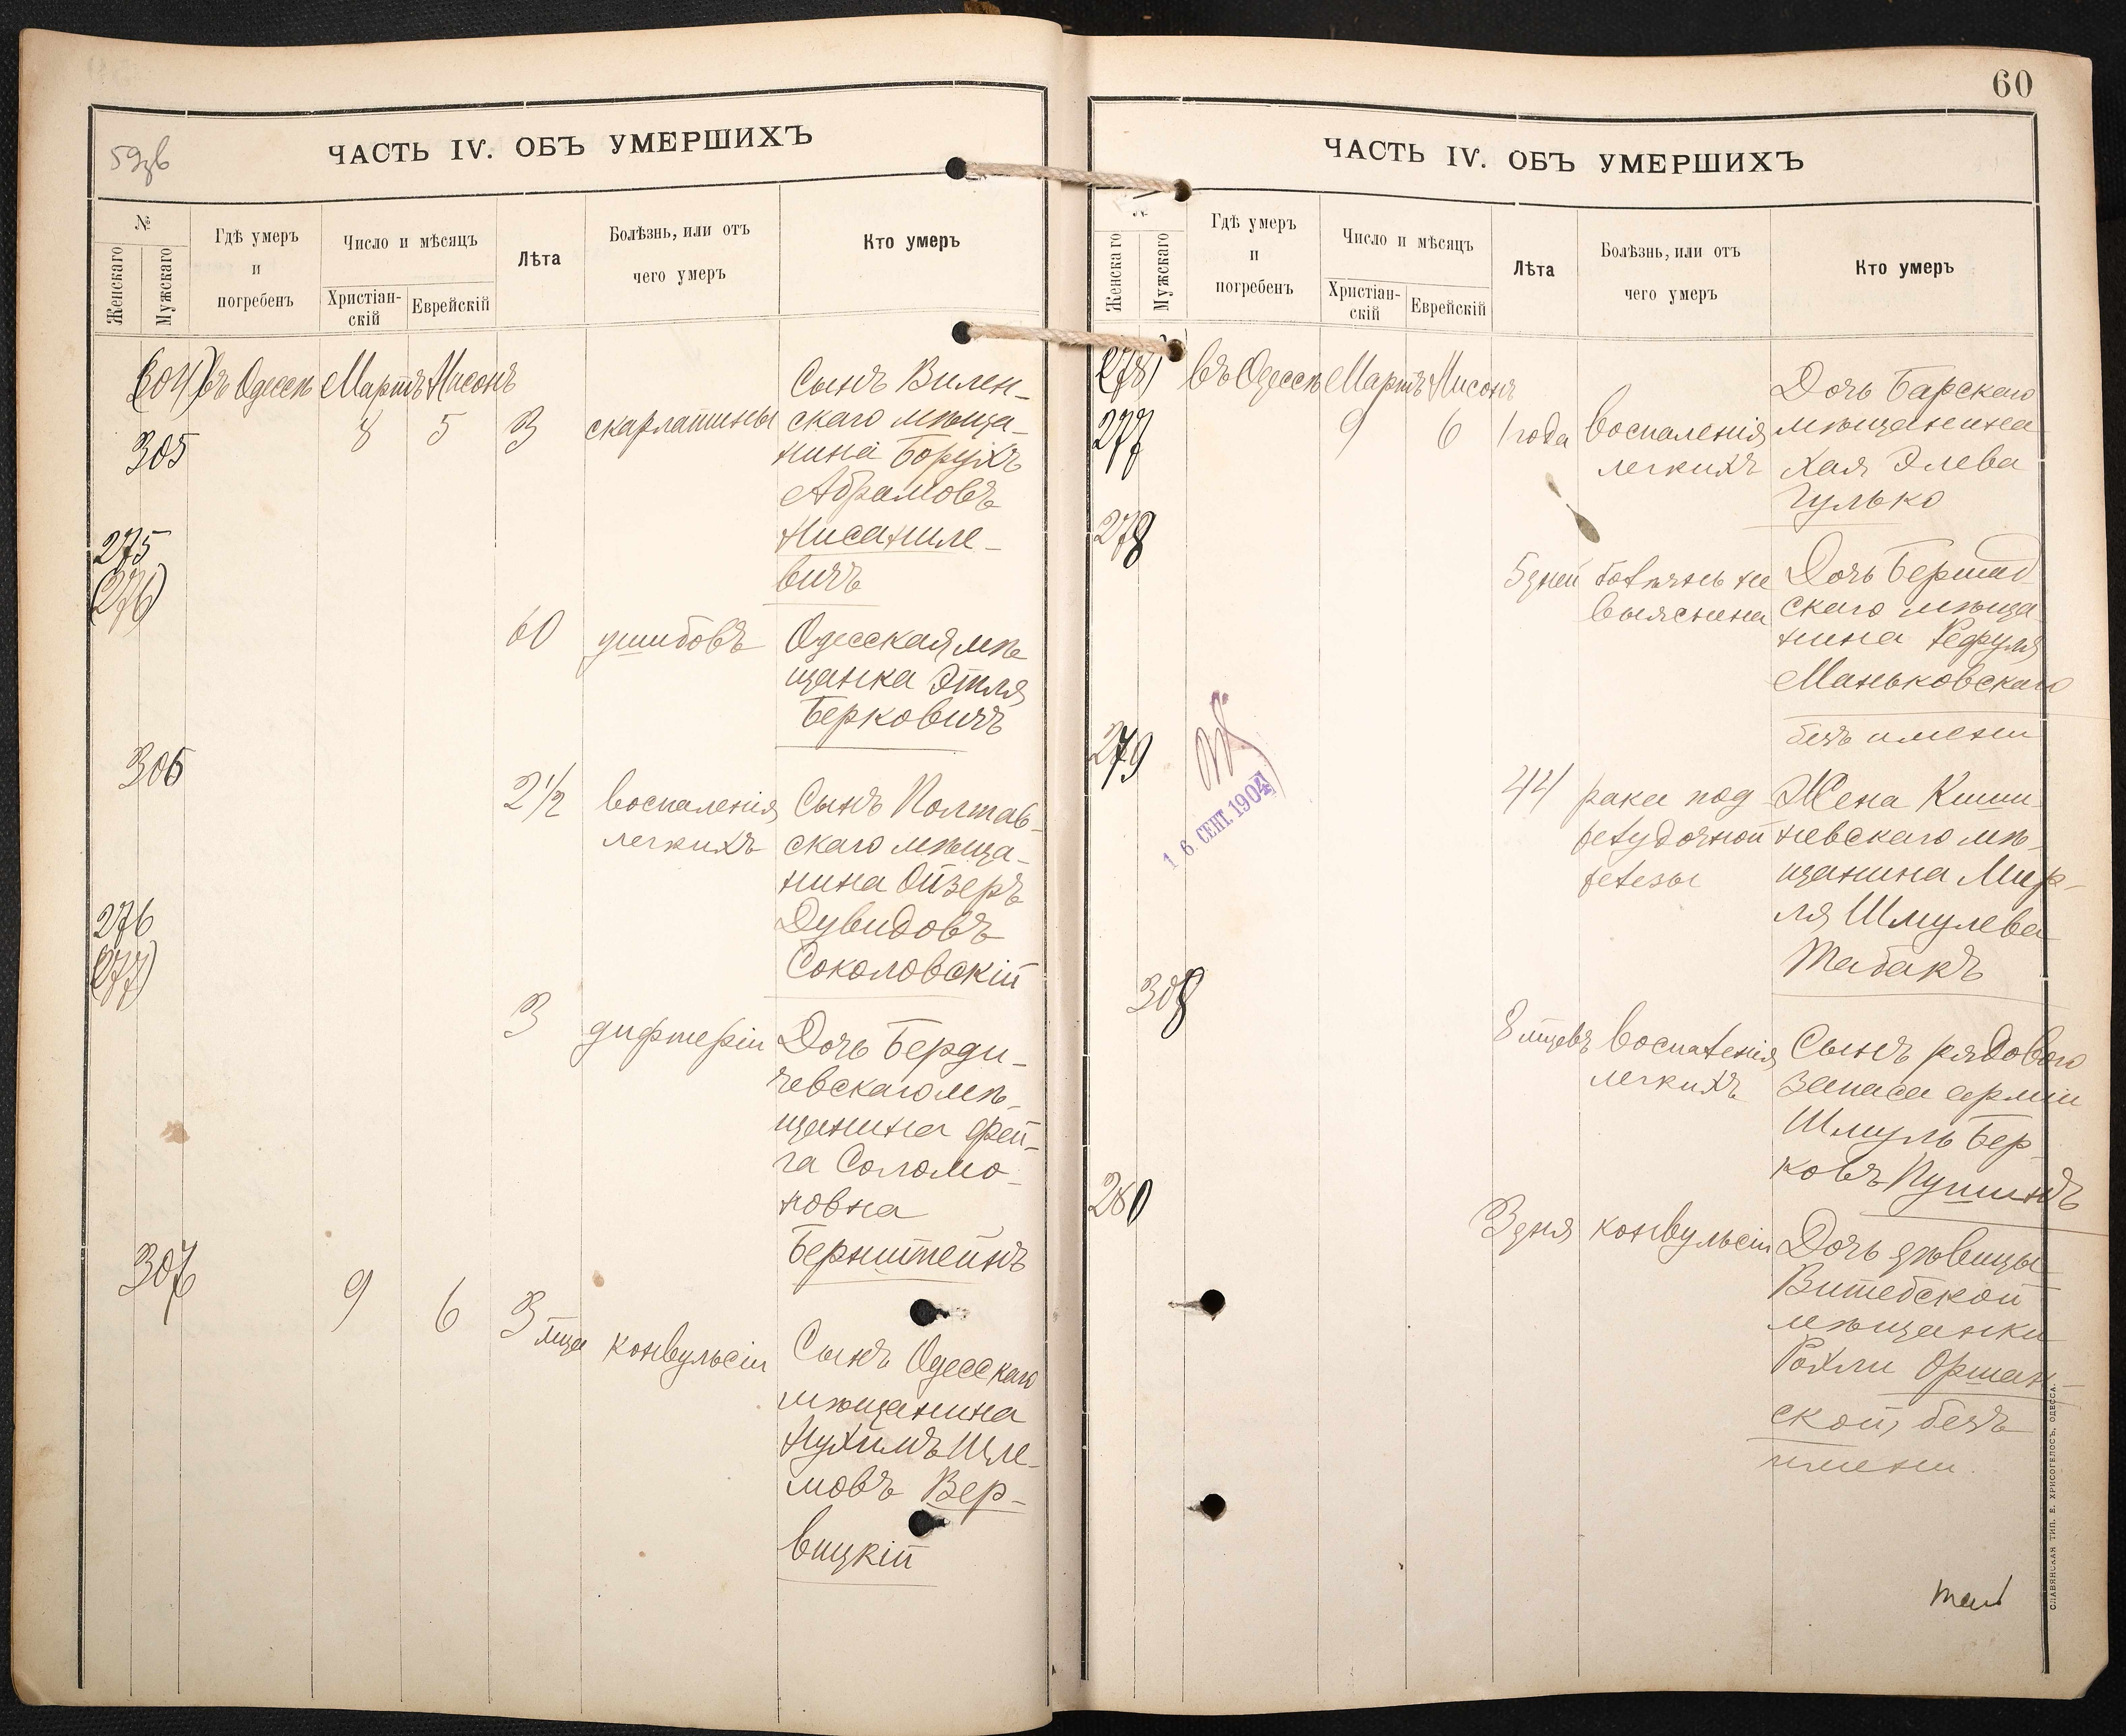 59об
ЧАСТЬ IV. ОБЪ УМЕРШИХЪ
№
Женскаго
Мужскаго
Гдѣ умеръ
и
погребенъ
Число и мѣсяцъ
Христіан-
скій
Еврейскій
Лѣта
Болѣзнь, или отъ
чего умеръ
Кто умеръ
(304) въ Одессѣ Мартъ Нисонъ
305
8 5 3 скарлатины
Сынъ Вилен-
скаго мѣща-
нина Борухъ
Абрамовъ
Нисаниле-
вичъ
275
(276)
60 ушибовъ
Одесская мѣ
щанка Этля
Берковичъ
306
2 1/2 воспаленія
легкихъ
Сынъ Полтав-
скаго мѣща-
нина Ойзеръ
Дувидовъ
Соколовскій
276
(277)
3 дифтеріи
Дочь Берди-
чевскаго мѣ-
щанина Фей-
га Соломо-
новна
Бернштейнъ
307
9 6 3 мца конвульсіи
Сынъ Одесскаго
мѣщанина
Нухимъ Шле-
мовъ Вер-
вицкій
60
ЧАСТЬ IV. ОБЪ УМЕРШИХЪ
№
Женскаго
Мужскаго
Гдѣ умеръ
и
погребенъ
Число и мѣсяцъ
Христіан-
скій
Еврейскій
Лѣта
Болѣзнь, или отъ
чего умеръ
Кто умеръ
(278) въ Одессѣ Мартъ Нисонъ
277
9 6 1 года воспаленія
легкихъ
Дочь Барскаго
мѣщанина
Хая Элева
Гулько
278
5 дней болѣзнь не
выяснена
Дочь Бершад
скаго мѣща
нина Рефуля
Маньковскаго
безъ имени
279
16. СЕНТ. 1904
44 рака под
желудочной
железы
Жена Киши
невскаго мѣ-
щанина Мир-
ля Шмулева
Табакъ
308
8 мцевъ воспаленія
легкихъ
Сынъ рядового
запаса арміи
Шмуль Бер
ковъ Пушинъ
280
3 дня конвульсіи
Дочь дѣвицы
Витебской
мѣщанки
Рохли Оршан-
ской, безъ
имени.
СЛАВЯНСКАЯ ТИП. Е. ХРИСОГЕЛОСЪ, ОДЕССА.